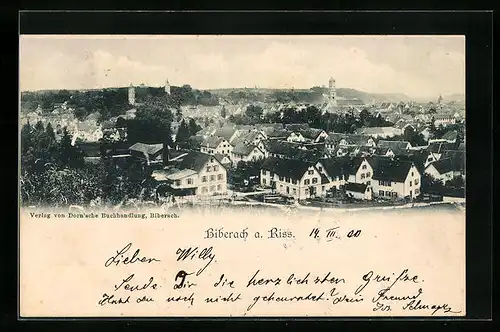 Verlag von Dorn'sche Buchhandlung, Biberach.
Biberach a. Riss. 14. III. 00
Lieben Willy
Sende Dir die herzlichsten Grüsse.
Hast du noch nicht geheuratet? Dein Freund
Jos.